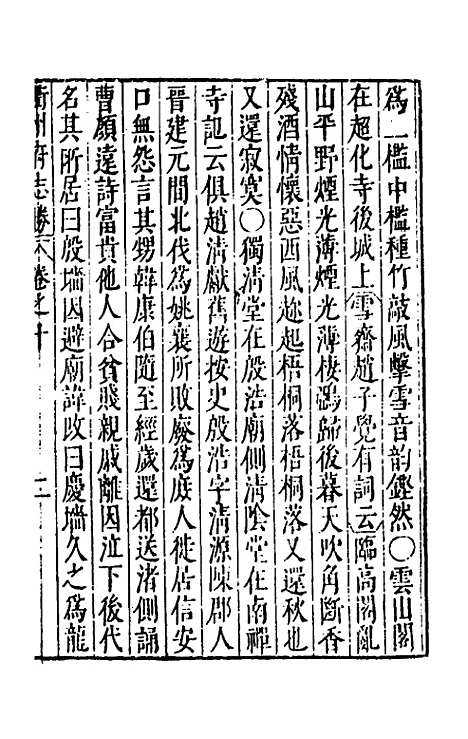 爲一檻中檻種竹敲風擊雪音韵鏗然〇雲山閣
在超化寺後城上雪齋趙子覺有詞云臨高閣亂
山平野煙光薄煙光薄棲鴉歸後暮天吹角斷香
殘酒情懷惡西風趂起梧桐落梧桐落又還秋也
又還寂寞〇獨淸堂在殷浩廟側淸陰堂在南禪
寺記云俱趙淸獻舊遊按史殷浩字淸源陳郡人
晉建元間北伐爲姚襄所敗廢爲庶人徙居信安
口無怨言其甥韓康伯隨至經歲還都送渚側誦
曹顏遠詩富貴他人合貧賤親戚離因泣下後代
名其所居曰殷墻因避廟諱改曰慶墻久之爲龍
衢州府志勝 卷之十